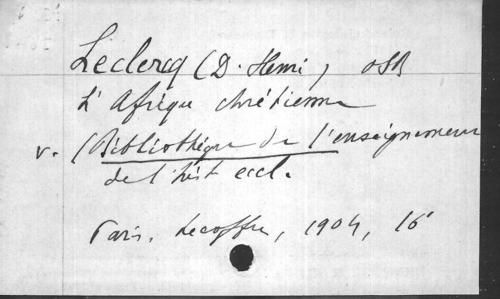 Leclercq (D. Henri) OSB
L'Afrique chrétienne
v. (Bibliothèque de l'enseignement
de l'hist eccl.
Paris. Lecoffre, 1904, 16°